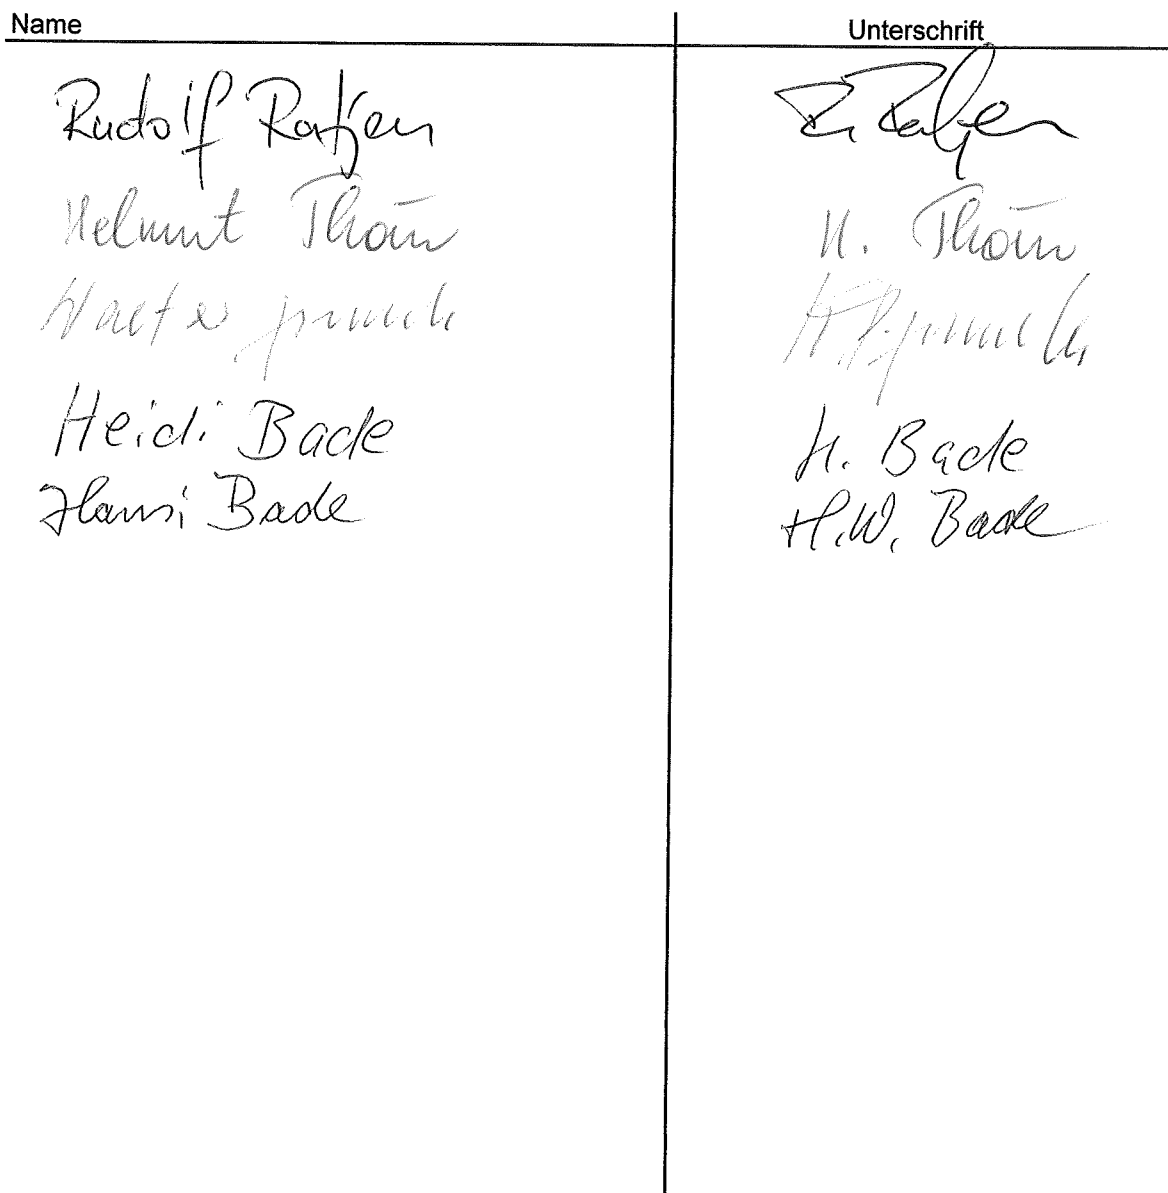 Name Unterschrift
Rudolf Ratjen R. Ratjen
Helmut H.
Walter
Heidi Bade H. Bade
Hansi Bade H.W. Bade